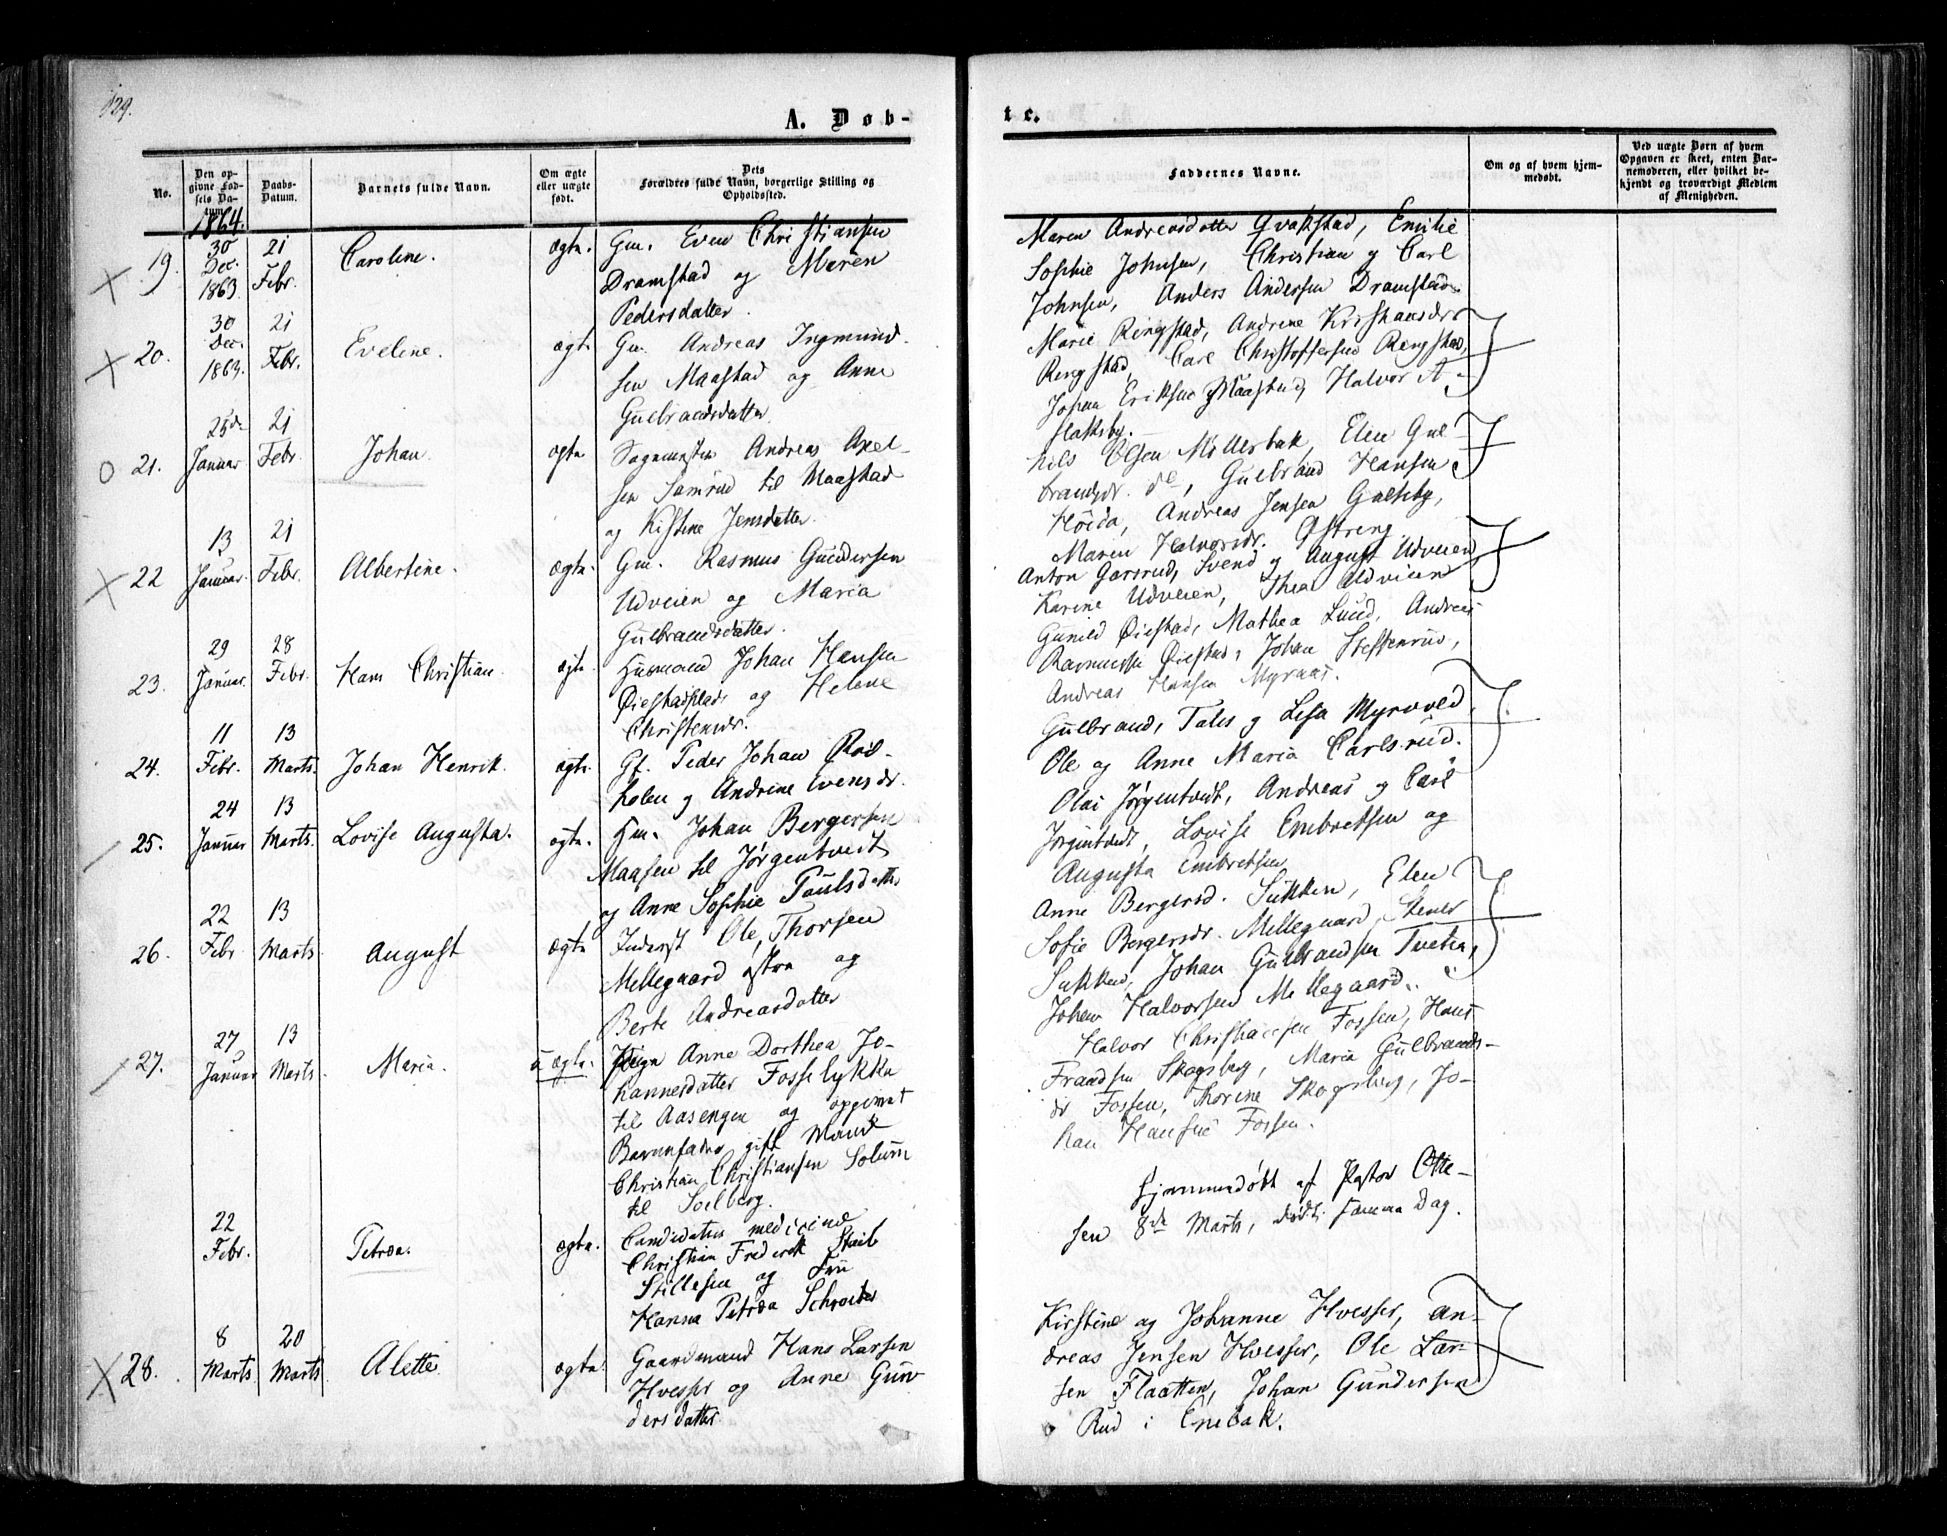 129.
A. Døb-
te.
No.
Den op-
givne Fød-
sels Da-
tum.
Daabs-
Datum.
Barnets fulde Navn.
Om ægte
eller uægte
født.
Dets
Forældres fulde Navn, borgerlige Stilling og
Opholdssted.
Faddernes Navne.
Om og af hvem hjem-
medøbt.
Ved uægte Børn af hvem
Opgaven er skeet, enten Bar-
nemoderen, eller hvilket be-
kjendt og troværdigt Medlem
af Menigheden.
1864.
19.
30
Dec.
1863
21
Febr.
Caroline.
ægte.
Gm. Even Christiansen
Dramstad og Maren
Pedersdatter.
Maren Andreasdatter Qvakstad, Emilie
Sophie Johnsen, Christian og Carl
Johnsen, Anders Andersen Dramstad
20.
30
Dec.
1863.
21
Febr.
Eveline.
ægte
Gm. Andreas Ingmund-
sen Maastad og Anne
Gulbrandsdatter
Marie Ringstad, Andrine Kristiansdr
Ringstad, Carl Christoffersen Ringstad,
Johan Eriksen Maastad, Halvor A-
slaksby.
21.
25de
Januar
21
Febr.
Johan.
ægte
Sagmester Andreas Axel-
sen Samrud til Maastad
og Kistine Jensdatter.
Nils Olsen Møllerbak, Elen Gul-
brandsdr. dº, Gulbrand Hansen
Høida, Andreas Jensen Galseby,
Maren Halvorsdr. Østreng
22
13
Januar.
21
Febr.
Albertine.
ægte.
Gm. Rasmus Gundersen
Udveien og Maria
Gulbrandsdatter.
Anton Garsrud, Svend og August Udveien,
Karine Udveien, Thea Udveien
23.
29
Januar.
28
Febr.
Hans Christian
ægte
Husmand Johan Hansen
Øiestadplads og Helene
Christensdr.
Gunild Øiestad, Mathea Lund, Andreas
Rasmussen Øiestad, Johan Steffenrud,
Andreas Hansen Myraas.
24.
11
Febr.
13
Marts.
Johan Henrik
ægte.
Gf. Peder Johan
holen og Andrine Evensdr.
Gulbrand, Tales og Lisa Myrvold,
Ole og Anne Maria Carlsrud.
25.
24
Januar
13
Marts.
Lovise Augusta.
ægte.
Hm. Johan Bergersen
Maasen til Jørgentvedt
og Anne Sophie Paulsdatter
Olai Jørgentvedt, Andreas og Carl
Jørgentvedt, Lovise Embretsen og
Augusta Embretsen
26.
22
Febr
13
Marts
August
ægte
Inderst Ole Thorsen
Mellegaard østre og
Berte Andreasdatter
Anne Bergersd. Sukken, Elen
Sofie Bergersdr. Mellegaard, Stener
Sukken, Johan Gulbrandsen Tvetin,
Johan Halvorsen Mellegaard.
27.
27
Januar
13
Marts
Maria.
uægte.
Pige Anne Dorthea Jo-
hannesdatter Fosselykka
til Aasengen og opgivet
Barnefader gift Mand
Christian Christiansen Solum
til Solberg.
Halvor Christiansen Fossen, Hans
Frandsen Skogsberg, Maria Gulbrands-
dr Fossen, Thorine Skogsberg, Jo-
han Hansen Fossen.
22
Febr.
Petrea.
ægte.
Candidatus medicinæ
Christian Frederik Staib
Stillesen og Fru
Hanna Petrea Schroeter
hjemmedøbt af Pastor Otte-
sen 8de Marts, død samme Dag.
28.
8
Marts
20
Marts
Alette
ægte.
Gaardmand Hans Larsen
Hvesser og Anne Gun-
dersdatter
Kirstine og Johanne Hvesser, An-
dreas Jensen Hvesser, Ole Lar-
sen Flaatten, Johan Gundersen
Rud i Enebak.